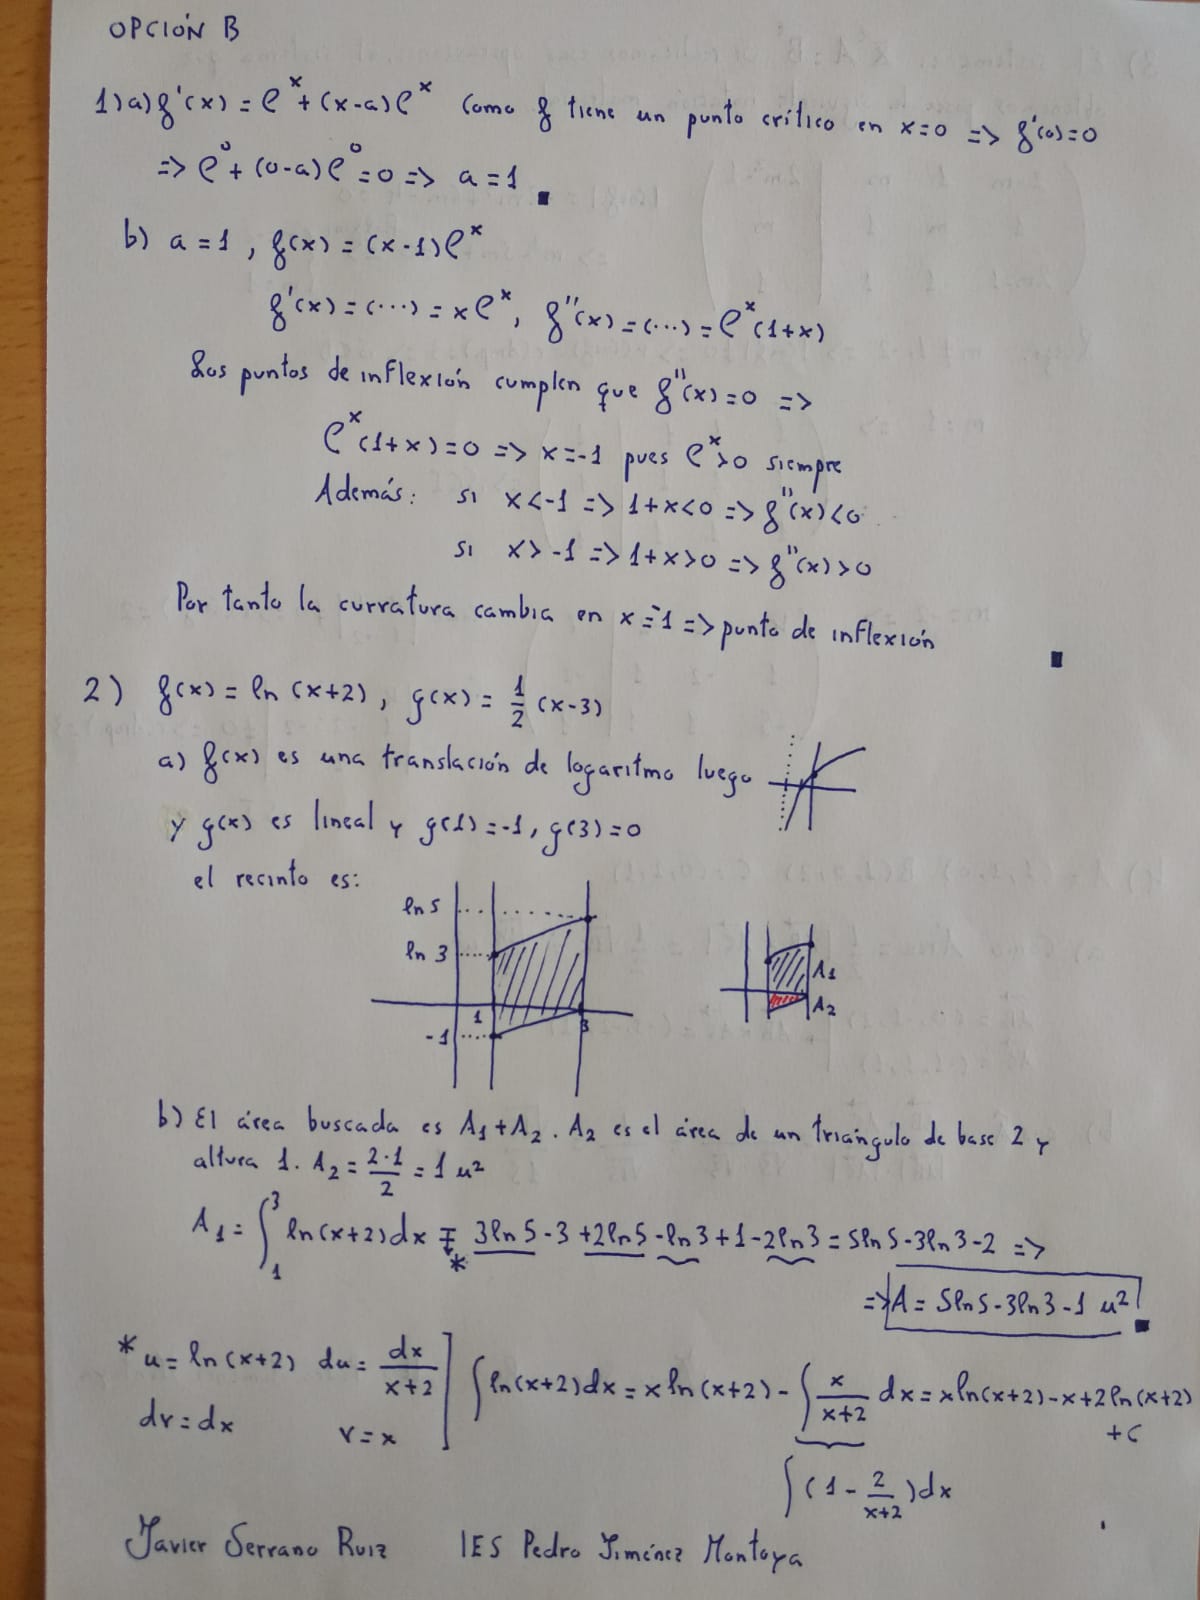 OPCIÓN B
1) a) f'(x) = e^x + (x-a)e^x Como f tiene un punto crítico en x=0 => f'(0)=0
=> e^0 + (0-a)e^0 = 0 => a = 1 ■
b) a = 1, f(x) = (x-1)e^x
f'(x) = (...) = xe^x, f''(x) = (...) = e^x(1+x)
Los puntos de inflexión cumplen que f''(x)=0 =>
e^x(1+x)=0 => x=-1 pues e^x>0 siempre
Además: si x<-1 => 1+x<0 => f''(x)<0
si x>-1 => 1+x>0 => f''(x)>0
Por tanto la curvatura cambia en x=-1 => punto de inflexión ■
2) f(x) = ln(x+2), g(x) = 1/2 (x-3)
a) f(x) es una translación de logaritmo luego
y g(x) es lineal y g(1)=-1, g(3)=0
el recinto es:
ln 5
ln 3
1
3
-1
A1
A2
b) El área buscada es A1+A2. A2 es el área de un triángulo de base 2 y
altura 1. A2 = 2·1/2 = 1 u²
A1 = ∫_1^3 ln(x+2)dx =* 3ln5-3+2ln5-ln3+1-2ln3 = 5ln5-3ln3-2 =>
=> A = 5ln5-3ln3-1 u² ■
* u = ln(x+2) du = dx/(x+2) ] ∫ln(x+2)dx = x ln(x+2) - ∫ x/(x+2) dx = xln(x+2)-x+2ln(x+2)
dv = dx v = x +C
∫(1 - 2/(x+2))dx
Javier Serrano Ruiz IES Pedro Jiménez Montoya